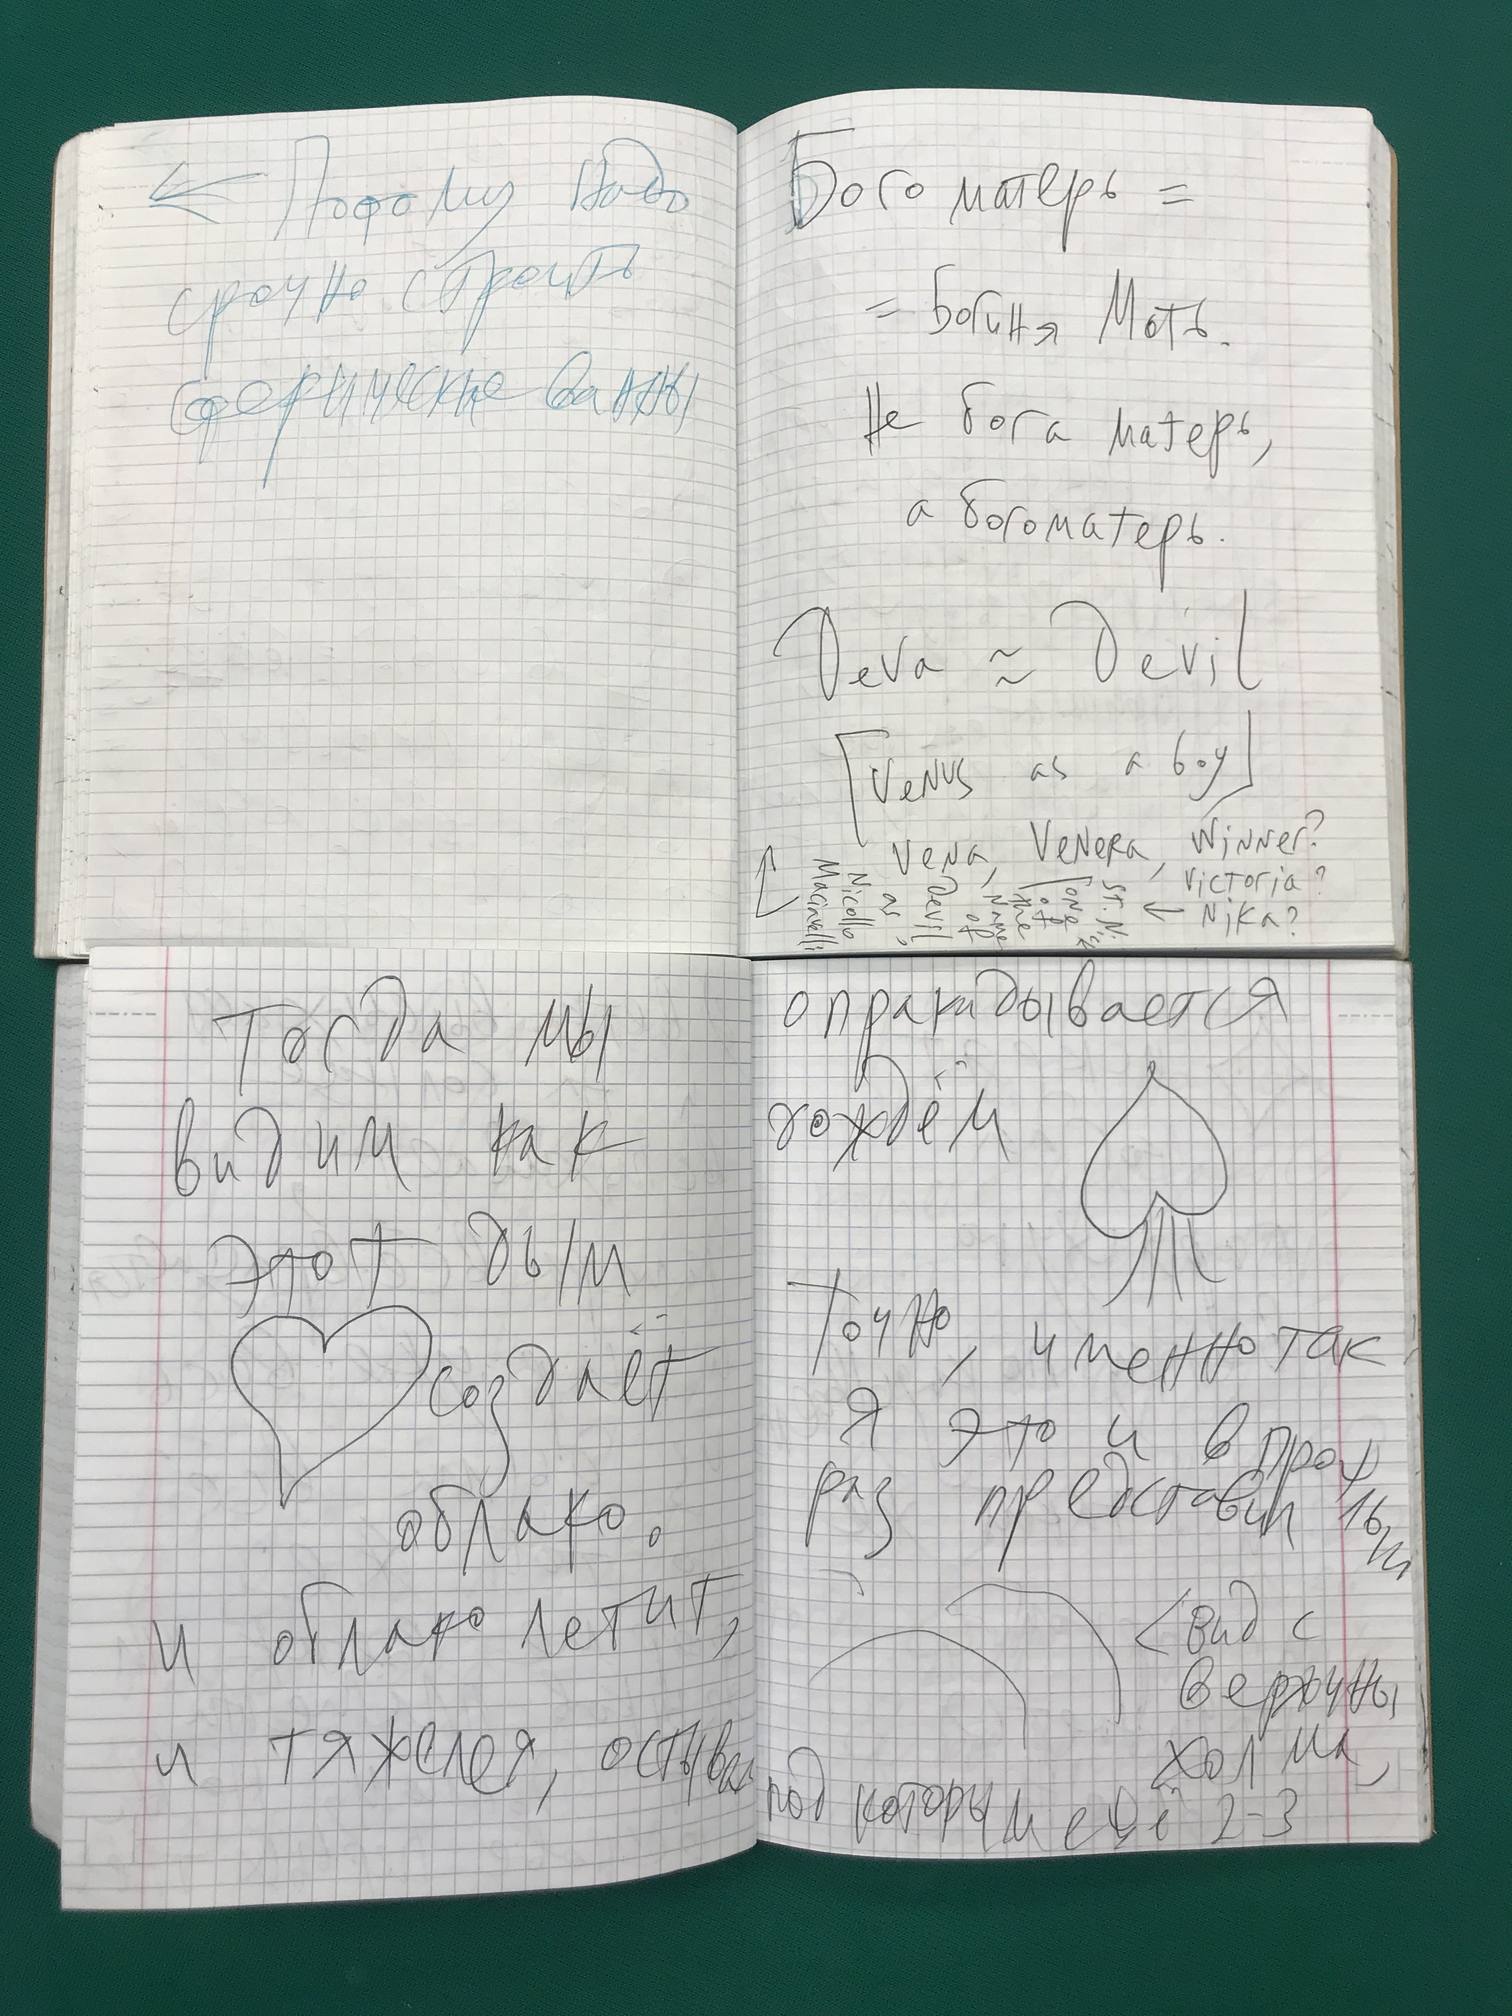 ← Поэтому надо
срочно строить
сферические ванны
Богоматерь =
= Богиня Мать.
Не бога матерь,
а богоматерь.
Deva ≈ Devil
[Venus as a boy]
Vena, Venera, Winner?
Victoria?
← Nika?
St. Nick
[one of
the
Names
of
Devil,
as
Nicollo
Macivelli
Тогда мы
видим как
этот дым
создаёт
облако.
и облако летит,
и тяжелея, остывая
опракидывается
дождём
Точно, именно так
я это и в прошлый
раз представил
< вид с
верхчины
холма,
под которым ещё 2-3